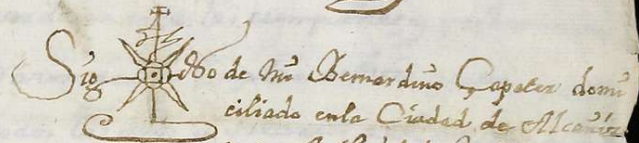 Sig no de mi Bernardino Çapater domi
ciliado enla Ciudad de Alcañiz